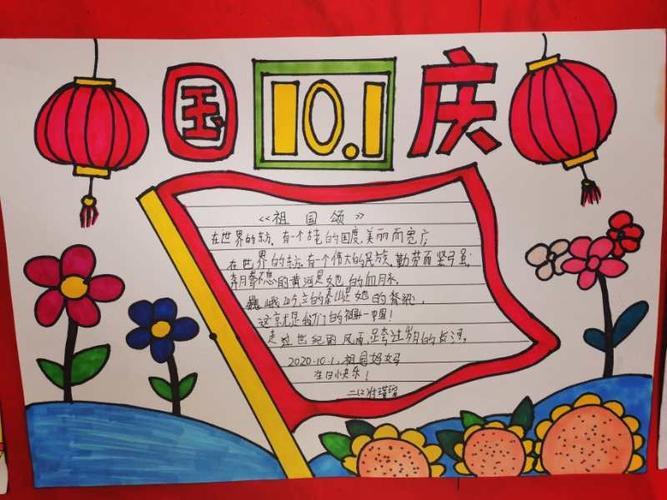 国 10.1 庆
《祖国颂》
在世界的东方，有一个古老的国度，美丽而宽广
在世界的东方，有一个伟大的民族，勤劳而坚强
奔腾不息的黄河是她的血脉
巍峨屹立的泰山是她的脊梁，
这就是我们的祖国—中国！
走过世纪的风雨，跨过岁月的长河。
2020.10.1，祖国妈妈
生日快乐！
二(2)